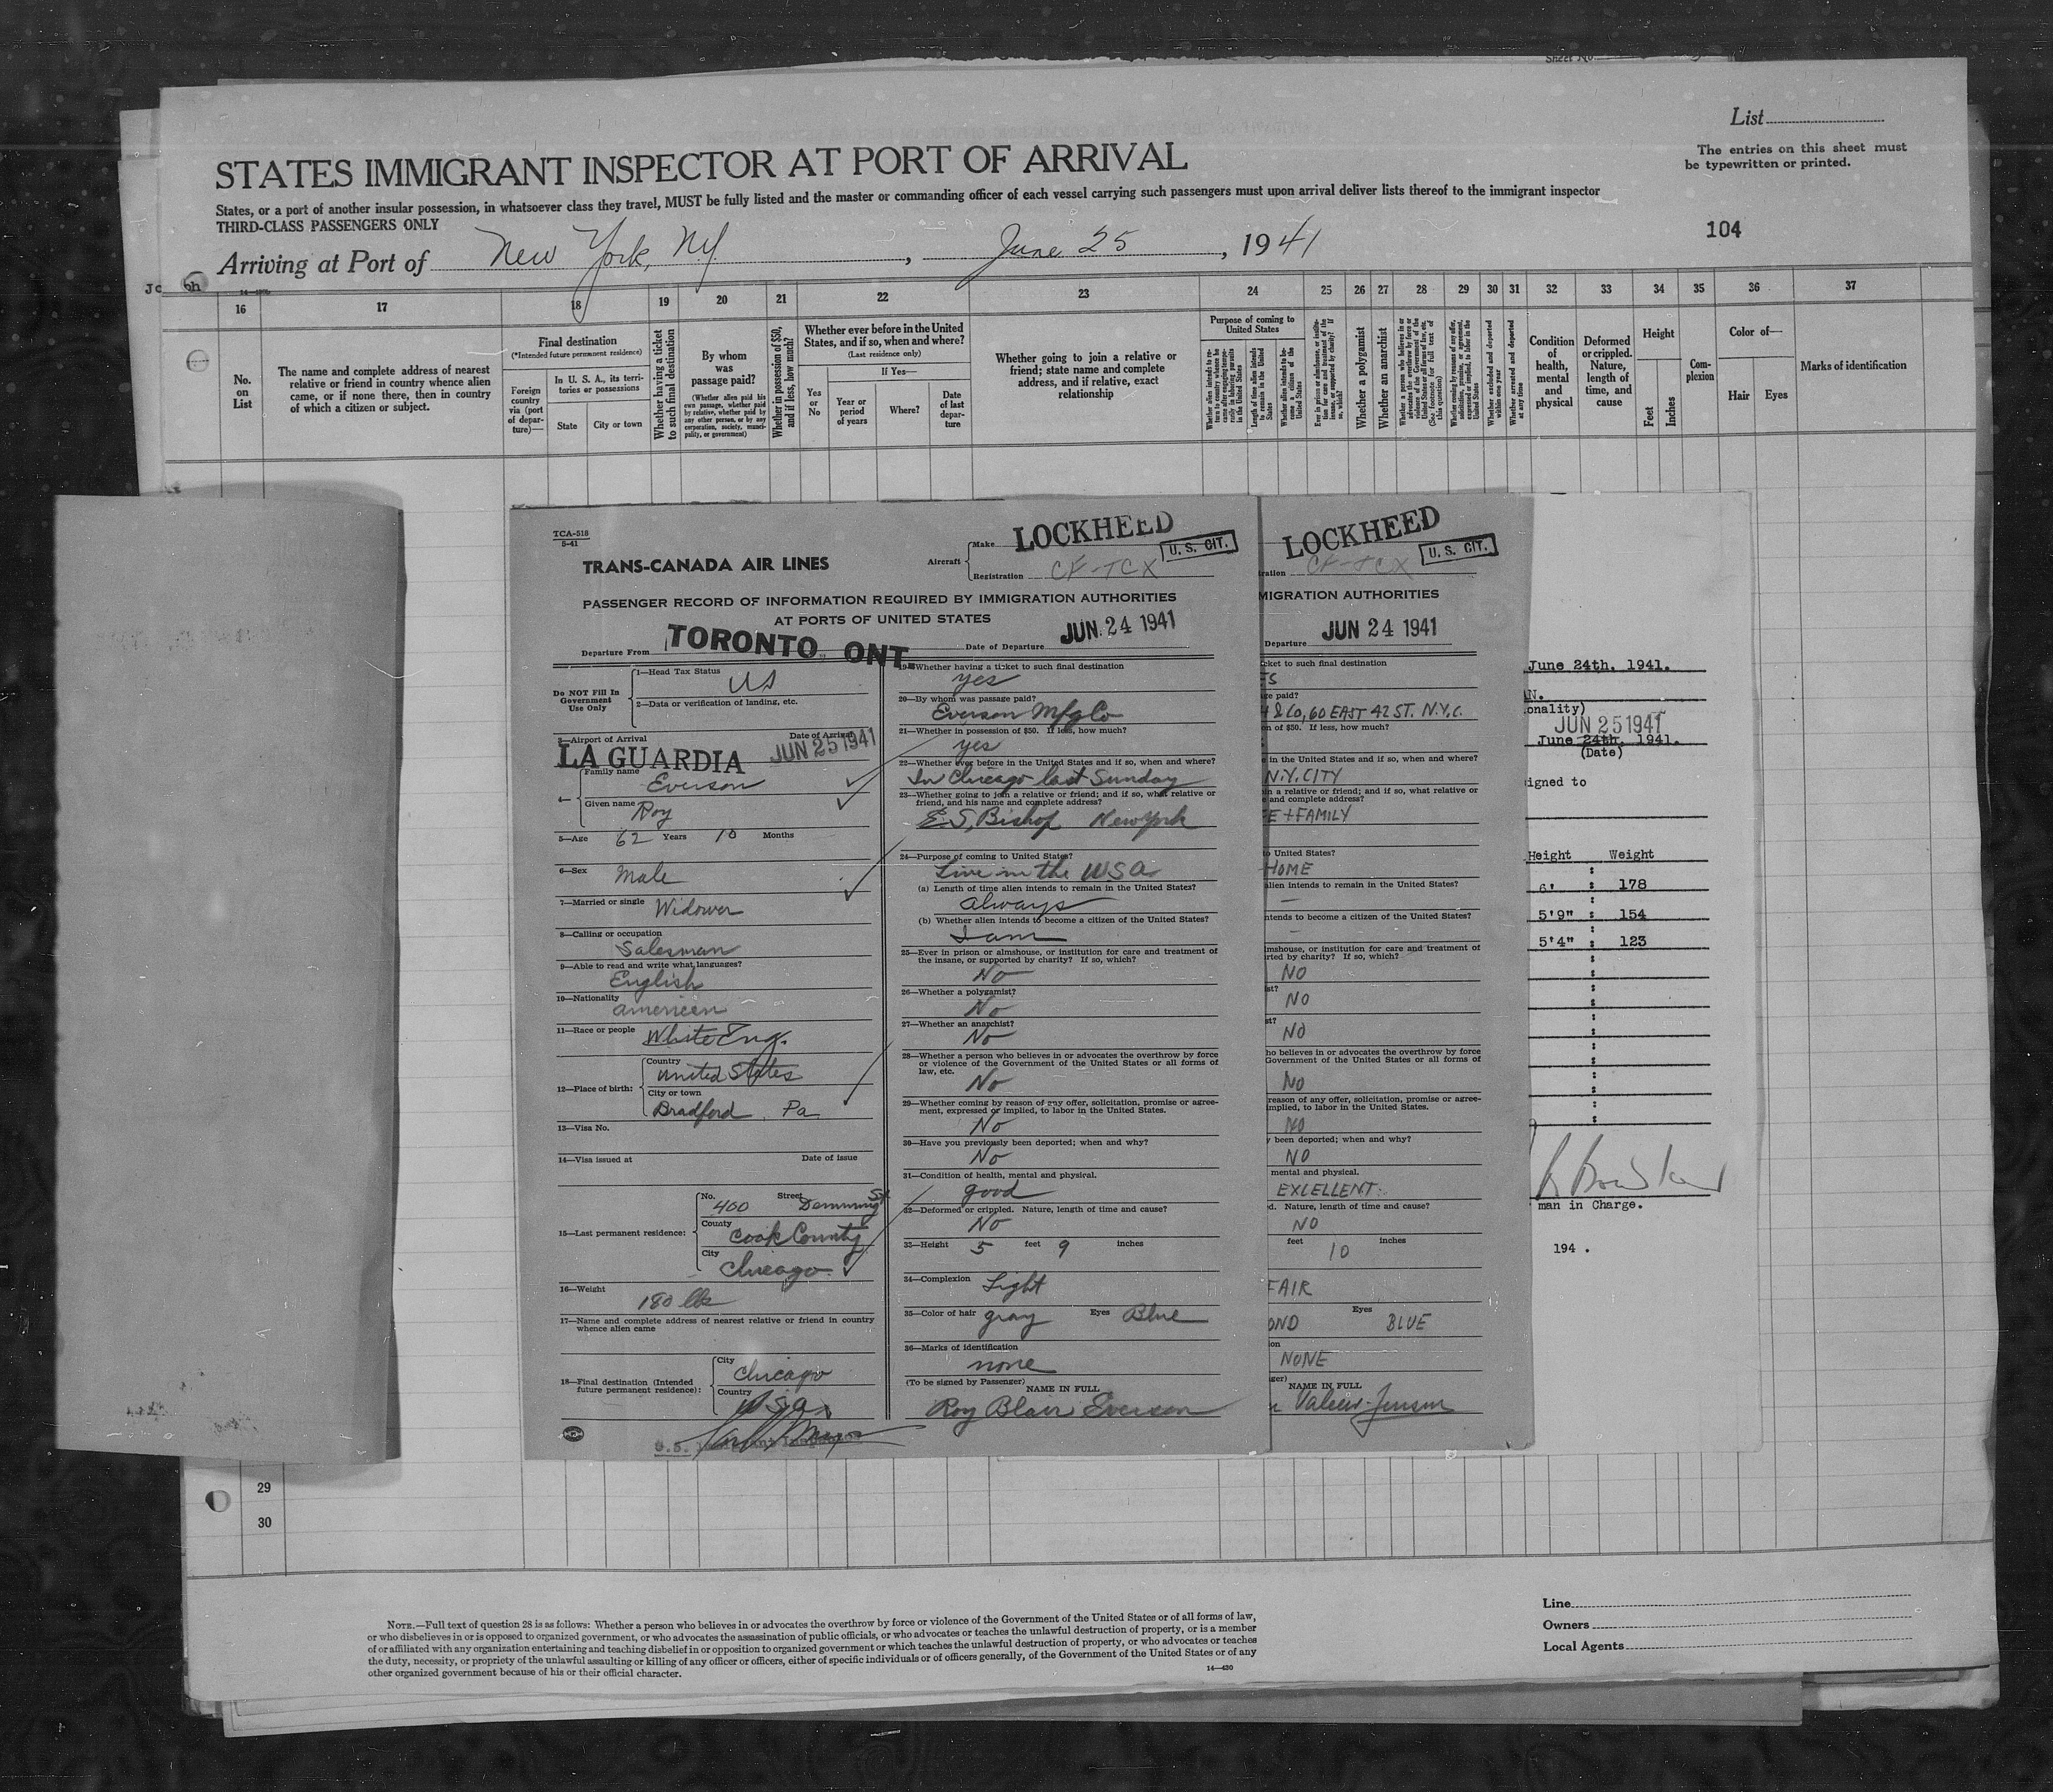 Sheet No.
List
The entries on this sheet must
be typewritten or printed.
STATES IMMIGRANT INSPECTOR AT PORT OF ARRIVAL
States, or a port of another insular possession, in whatsoever class they travel, MUST be fully listed and the master or commanding officer of each vessel carrying such passengers must upon arrival deliver lists thereof to the immigrant inspector
THIRD-CLASS PASSENGERS ONLY
104
Arriving at Port of New York, NY, June 25, 1941
16 17 18 19 20 21 22 23 24 25 26 27 28 29 30 31 32 33 34 35 36 37
No.
on
List
The name and complete address of nearest
relative or friend in country whence alien
came, or if none there, then in country
of which a citizen or subject.
Final destination
(*Intended future permanent residence)
Foreign
country
via (port
of depar-
ture)—
In U. S. A., its terri-
tories or possessions
State
City or town
Whether having a ticket
to such final destination
By whom
was
passage paid?
(Whether alien paid his
own passage, whether paid
by relative, whether paid by
any other person, or by any
corporation, society, munici-
pality, or government)
Whether in possession of $50,
and if less, how much?
Whether ever before in the United
States, and if so, when and where?
(Last residence only)
Yes
or
No
If Yes—
Year or
period
of years
Where?
Date
of last
depar-
ture
Whether going to join a relative or
friend; state name and complete
address, and if relative, exact
relationship
Purpose of coming to
United States
Whether a polygamist
Whether an anarchist
Condition
of
health,
mental
and
physical
Deformed
or crippled.
Nature,
length of
time, and
cause
Height
Feet
Inches
Com-
plexion
Color of—
Hair
Eyes
Marks of identification
TCA-518
5-41
TRANS-CANADA AIR LINES
Aircraft
Make LOCKHEED
U. S. CIT.
Registration CF-TCX
PASSENGER RECORD OF INFORMATION REQUIRED BY IMMIGRATION AUTHORITIES
AT PORTS OF UNITED STATES
Departure From TORONTO ONT.
Date of Departure JUN 24 1941
Do NOT Fill In
Government
Use Only
1—Head Tax Status
US
2—Data or verification of landing, etc.
3—Airport of Arrival
Date of Arrival
LA GUARDIA JUN 25 1941
4—
Family name
Everson
Given name
Roy
5—Age 62 Years 10 Months
6—Sex
Male
7—Married or single Widower
8—Calling or occupation
Salesman
9—Able to read and write what languages?
English
10—Nationality
american
11—Race or people White Eng.
12—Place of birth:
Country
United States
City or town
Bradford, Pa
13—Visa No.
14—Visa issued at
Date of issue
15—Last permanent residence:
No. 400 Street Demming St
County
Cook County
City
Chicago
16—Weight
180 lbs
17—Name and complete address of nearest relative or friend in country
whence alien came
18—Final destination (Intended
future permanent residence):
City
Chicago
Country
USA
U.S.
19—Whether having a ticket to such final destination
yes
20—By whom was passage paid?
Everson Mfg Co
21—Whether in possession of $50. If less, how much?
yes
22—Whether ever before in the United States and if so, when and where?
In Chicago last Sunday
23—Whether going to join a relative or friend; and if so, what relative or
friend, and his name and complete address?
E. S. Bishop New York
24—Purpose of coming to United States?
Live in the USA
(a) Length of time alien intends to remain in the United States?
always
(b) Whether alien intends to become a citizen of the United States?
I am
25—Ever in prison or almshouse, or institution for care and treatment of
the insane, or supported by charity? If so, which?
No
26—Whether a polygamist?
No
27—Whether an anarchist?
No
28—Whether a person who believes in or advocates the overthrow by force
or violence of the Government of the United States or all forms of
law, etc.
No
29—Whether coming by reason of any offer, solicitation, promise or agree-
ment, expressed or implied, to labor in the United States.
No
30—Have you previously been deported; when and why?
No
31—Condition of health, mental and physical.
good
32—Deformed or crippled. Nature, length of time and cause?
No
33—Height 5 feet 9 inches
34—Complexion
Light
35—Color of hair gray Eyes Blue
36—Marks of identification
none
(To be signed by Passenger)
NAME IN FULL
Roy Blair Everson
LOCKHEED
U. S. CIT.
ration CF-TCX
MIGRATION AUTHORITIES
Departure JUN 24 1941
cket to such final destination
ES
ge paid?
& Co, 60 EAST 42 ST. N.Y.C.
on of $50. If less, how much?
e in the United States and if so, when and where?
N.Y. CITY
in a relative or friend; and if so, what relative or
e and complete address?
FE + FAMILY
to United States?
HOME
alien intends to remain in the United States?
—
ntends to become a citizen of the United States?
—
lmshouse, or institution for care and treatment of
rted by charity? If so, which?
NO
st?
NO
st?
NO
ho believes in or advocates the overthrow by force
Government of the United States or all forms of
NO
reason of any offer, solicitation, promise or agree-
implied, to labor in the United States.
NO
y been deported; when and why?
NO
mental and physical.
EXLELLENT.
d. Nature, length of time and cause?
NO
feet 10 inches
FAIR
OND Eyes BLUE
ion
NONE
ger)
NAME IN FULL
June 24th, 1941.
AN.
onality)
JUN 25 1941
June 24th, 1941.
(Date)
igned to
Height Weight
6' : 178
5'9" : 154
5'4" : 123
man in Charge.
194 .
29
30
NOTE.—Full text of question 28 is as follows: Whether a person who believes in or advocates the overthrow by force or violence of the Government of the United States or of all forms of law,
or who disbelieves in or is opposed to organized government, or who advocates the assassination of public officials, or who advocates or teaches the unlawful destruction of property, or is a member
of or affiliated with any organization entertaining and teaching disbelief in or opposition to organized government or which teaches the unlawful destruction of property, or who advocates or teaches
the duty, necessity, or propriety of the unlawful assaulting or killing of any officer or officers, either of specific individuals or of officers generally, of the Government of the United States or of any
other organized government because of his or their official character.
14—430
Line
Owners
Local Agents